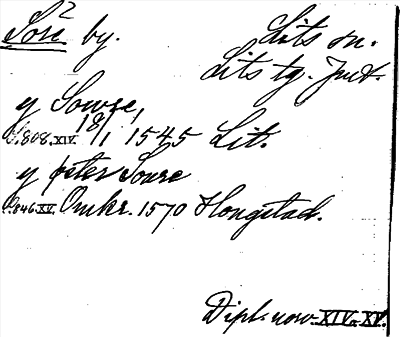 Söre² by. Lits sn.
Lits tg. Jmt.
y Sowre,
D.808.XIV. 18/1 1545 Lit.
y peter Soure
D.846.XV. Omkr. 1570 Hongstad.
Dipl. norv. XIV, XV.